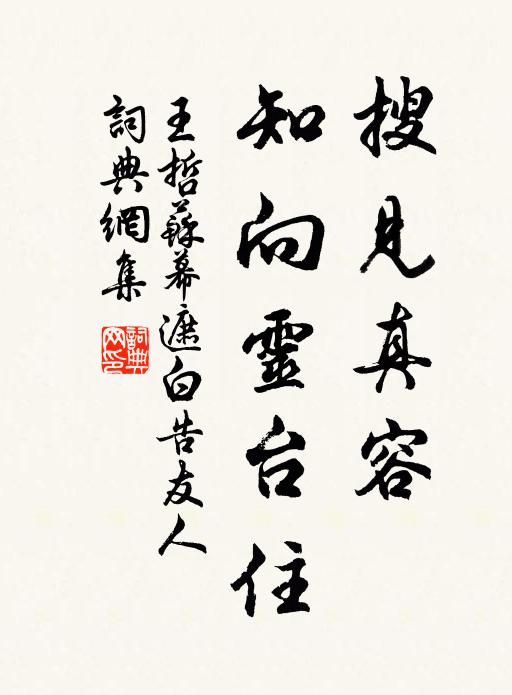 搜見真容
知向靈台住
王哲蘇幕遮白告友人
詞典網集
詞典
网印